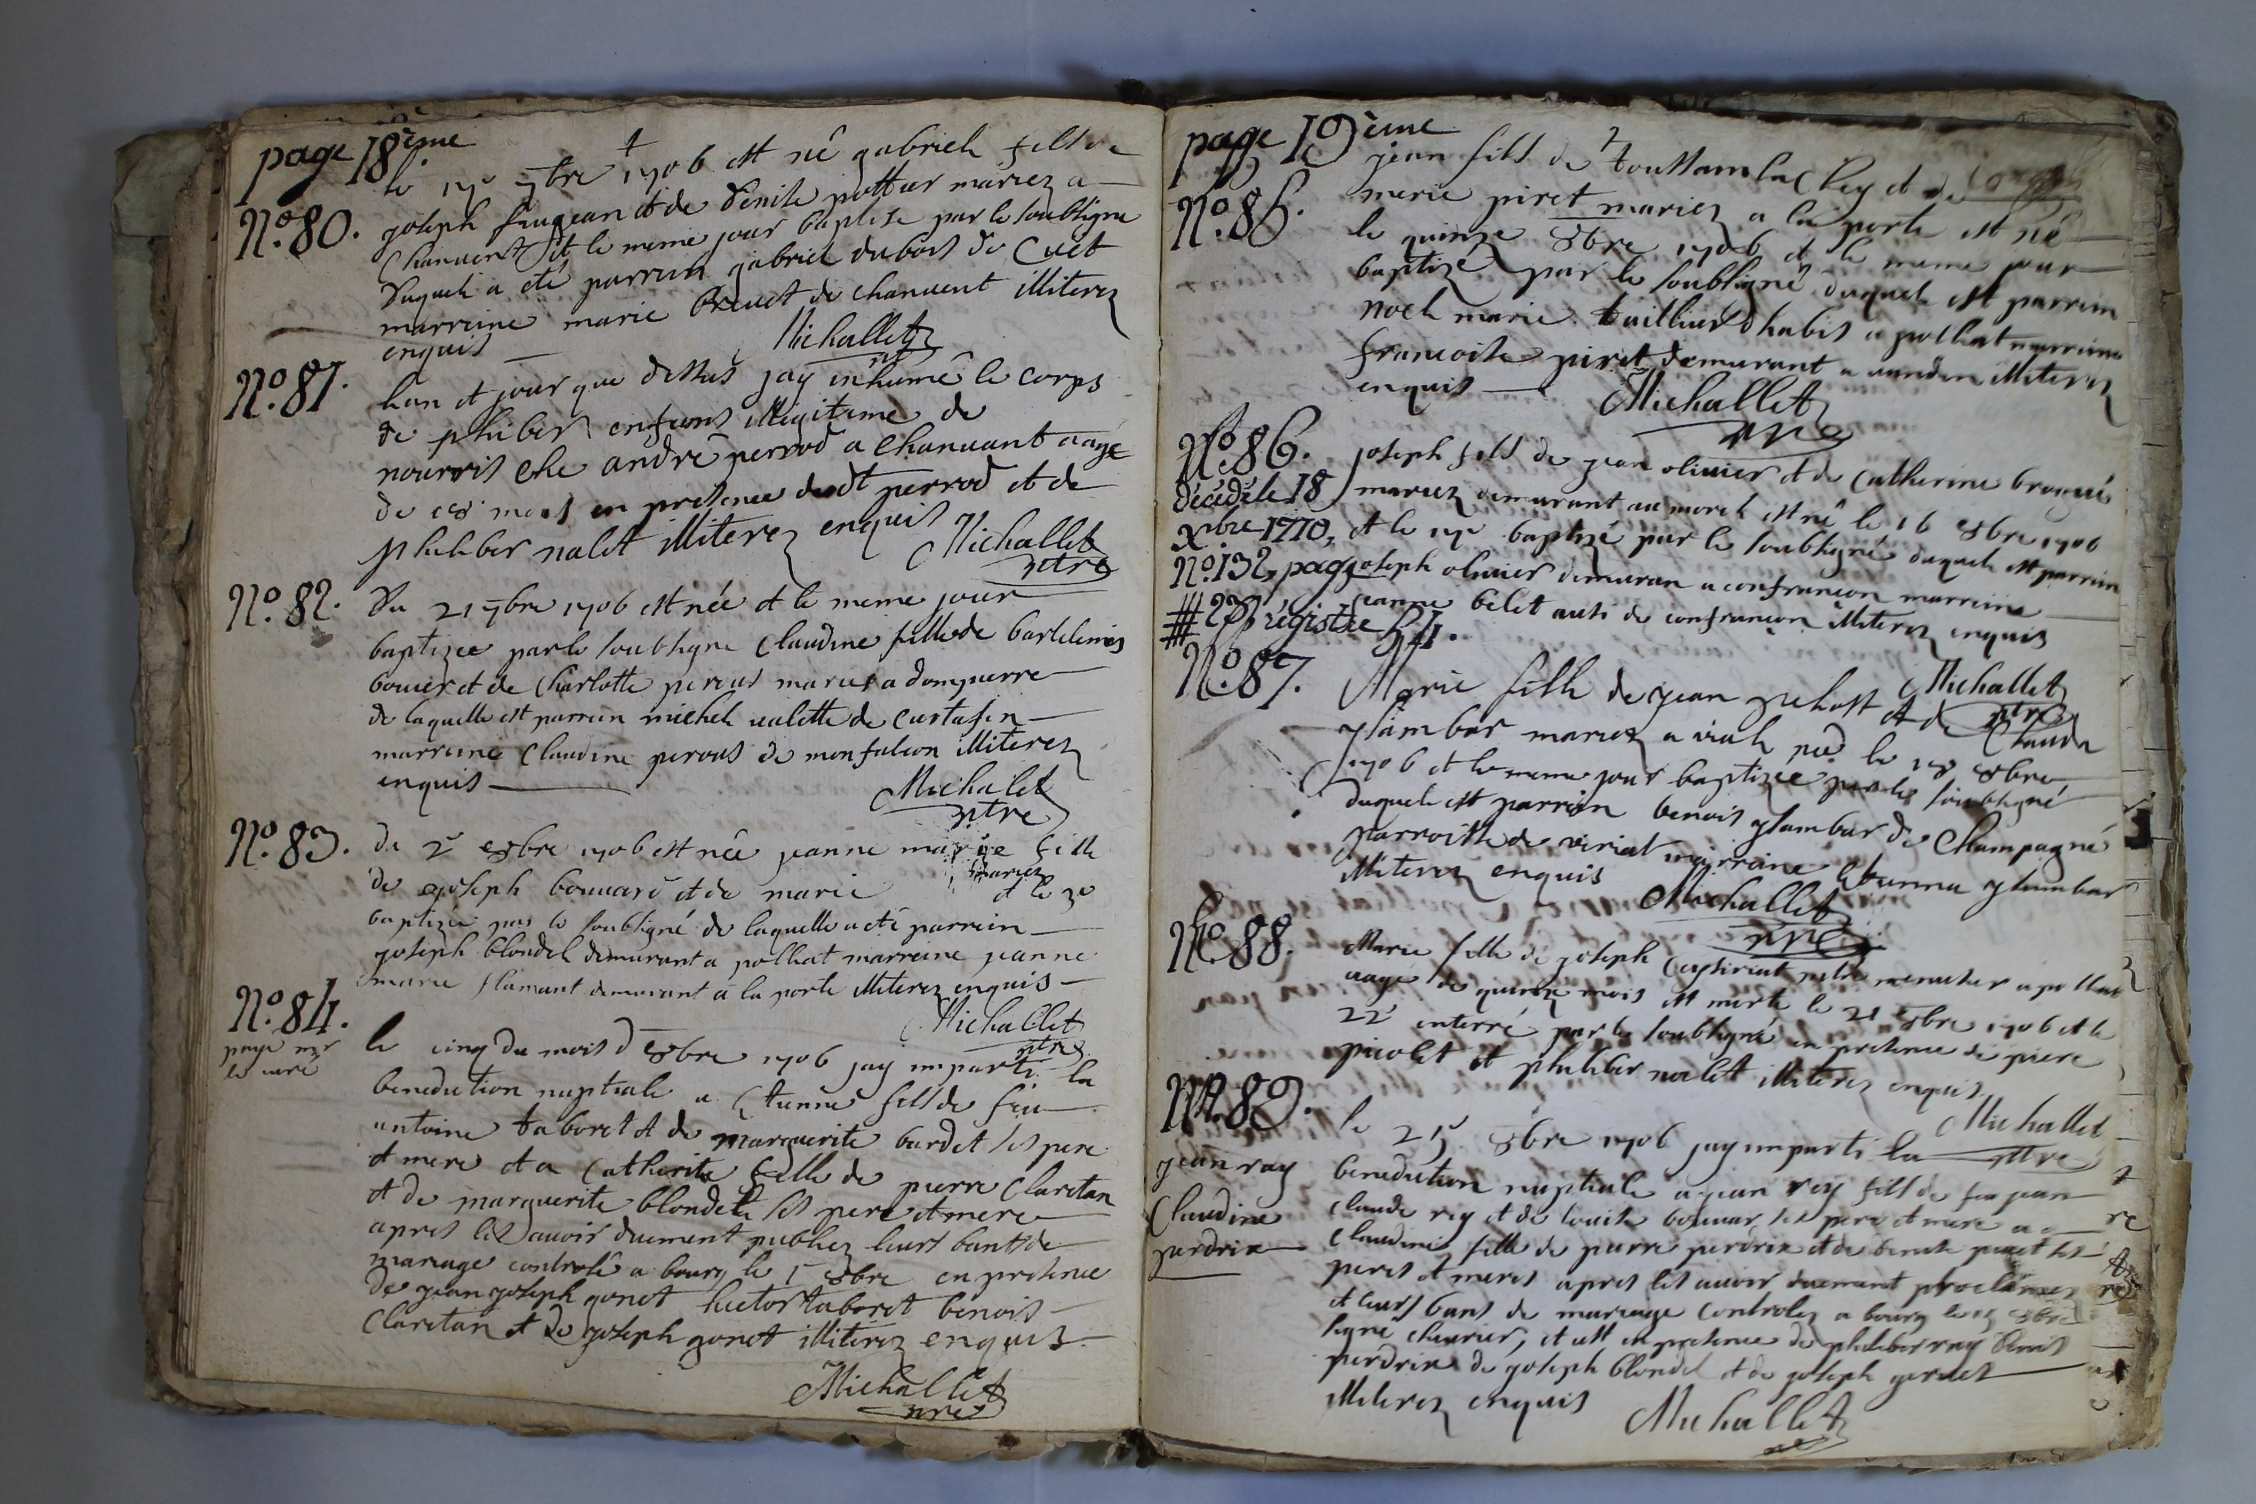 page 18ème
le 17e 7bre 1706 est né gabriel fils de
No. 80. joseph faugean et de Denise pottier mariez a
Chanuent et le meme jour baptise par le soubsigné
Duquel a eté parrein gabriel dubois de Cuet
marreine marie breuet de chanuent illiterez
enquis
Michallet ptre
No. 81. han et jour que dessus jay inhumé le corps
de phiber enfant illegitime de
nourris che andré perrod a Chanuant aagé
de mois en presence dudt perrod et de
philiber nalet illiterez enquis
Michallet
ptre
No. 82. Du 21 7bre 1706 est née et le meme jour
baptizee par le soubsigne Claudine fille de bartelemis
bouier et de Charlotte perous maries a dompierre
de laquelle est parrein michel ualette de Curtafon
marreine Claudine perous de monfalcon illiterez
enquis
Michalet
ptre
No. 83. de 2e 8bre 1706 est née jeanne marie fille
de joseph bouuard et de marie mariez et le 3e
baptizée par le soubsigné de laquelle a eté parrein
joseph blondel demurant a polliat marreine jeanne
marie flamant demurant a la porte illiterez enquis
Michallet
ptre
No. 84. le cinq du mois d 8bre 1706 jay imparti la
page mr
le curé
benediction nuptiale a Etienne fils de feu
antoine taboret et de marguerite burdet ses pere
et mere et a Catherine fille de pierre Claretan
et de marguerite blondel ses pere et mere
apres les auoir duement publiez leurs bants de
mariage controlé a bourg le 8bre en presence
de jean joseph gonet hector taboret benois
Claretan et de joseph gonet illiterez enquis
Michallet
ptre
page 19ème
jean fils de toussain la Cley et de
No. 85. merie piret mariez a la porte est né
le quinze 8bre 1706 et le meme jour
baptizé par le soubsigné duquel est parrein
noel marie taillieur dhabis a polliat marreine
francoise piret demurant a uandin illiterez
enquis
Michallet
ptre
No. 86. joseph fils de jean oliuier et de Catherine
décédé le 18 mariez demurant au morel est né le 16 8bre 1706
xbre 1710, et le 17e baptizé par le soubsigné duquel est parrein
No. 132, pag joseph oliuier demuran a confrancon marreine
# 27 régistre 54. jeanne belet ausi de confrancon illiterez enquis
Michallet
ptre
No. 87. Marie fille de jean et de Clauda
glambar mariez a uial née le 8bre
1706 et le meme jour baptizée par le soubsigné
duquel est parrein benois glambar de Champagné
parroisse de viriat marreine Etiennu glambar
illiterez enquis
Michallet
ptre
No. 88. Marie fille de joseph menuhier a polliat
aagé de quinze mois est morte le 21 8bre 1706 et le
22e interré par le soubsigné en presence de piere
picolet et philiber nalet illiterez enquis
Michallet
ptre
No. 89. le 25 8bre 1706 jay imparti la
jean ray
Claudine
perdrix
benediction nuptiale a jean rey fils de feu jean
claude rey et de louise bouuar ses pere et mere a a
Claudine fille de pierre perdrix et de benoite puget ses
peres et meres apres les auoir duement proclamez
et leurs bans de mariage controlez a bourg le 8bre
signé cheurier, et est en presence de philiber ray benois
perdrix de joseph blondel et de joseph
illiterez enquis
Michallet